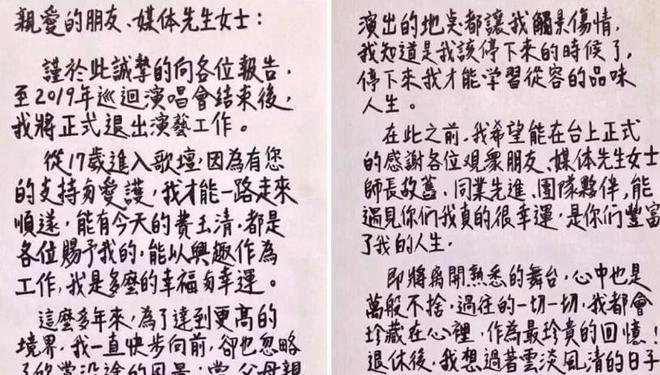 親愛的朋友、媒体先生女士：
謹於此誠摯的向各位報告，
至2019年巡迴演唱會結束後，
我將正式退出演藝工作。
從17歲進入歌壇，因為有您
的支持匆愛護，我才能一路走來
順遂，能有今天的費玉清，都是
各位賜予我的，能以興趣作為
工作，我是多麼的幸福匆幸運。
這麼多年來，為了達到更高的
境界，我一直快步向前，卻也忽略
了欣賞沿途的風景；當父母親
演出的地点都讓我觸景傷情，
我知道是我該停下來的時候了，
停下來我才能学習從容的品味
人生。
在此之前，我希望能在台上正式
的感謝各位観衆朋友、媒体先生女士
師長故舊、同業先進、團隊夥伴，能
遇見你們我真的很幸運，是你們豐富
了我的人生。
即將离開熟悉的舞台，心中也是
萬般不捨，過往的一切一切，我都會
珍藏在心裡，作為最珍貴的回憶！
退休後，我想過著雲淡風清的日子